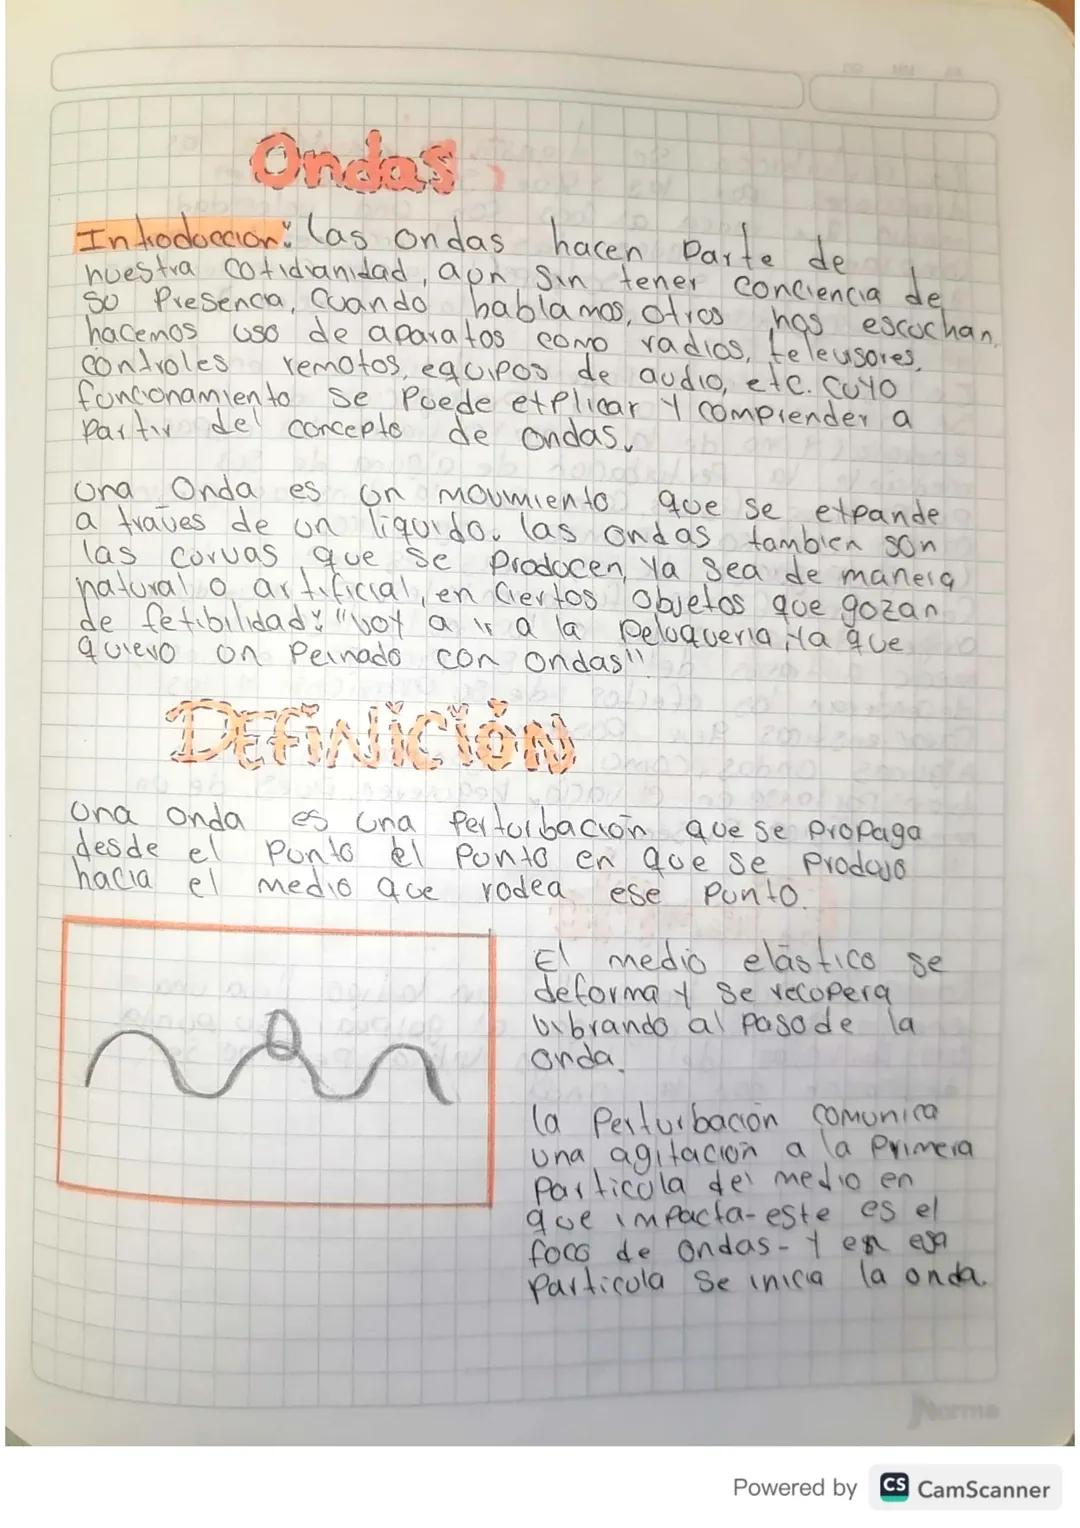 Ondas
Introduccion: las ondas hacen parte de
nuestra cotidianidad, aun sin tener conciencia de
su presencia, cuando hablamos, otros nos escuchan,
hacemos uso de aparatos como radios, televisores,
controles remotos, equipos de audio, etc. cuyo
funcionamiento se puede etplicar y comprender a
partir del concepto de ondas.
una Onda es un movimiento que se etpande
a traves de un liquido. las ondas tambien son
las curvas que se producen, ya sea de manera
natural o artificial, en ciertos objetos que gozan
de fetibilidad: "voy a ir a la peluqueria, ya que
quiero un peinado con ondas"
DEFINICIÓN
una onda es una perturbación que se propaga
desde el punto el punto en que se produjo
hacia el medio que rodea ese punto.
El medio elástico se
deforma y se recupera
vibrando al paso de la
onda.
la perturbación comunica
una agitación a la primera
particula del medio en
que impacta-este es el
foco de ondas- y en esa
particula se inicia la onda.
Norma
Powered by CS CamScanner